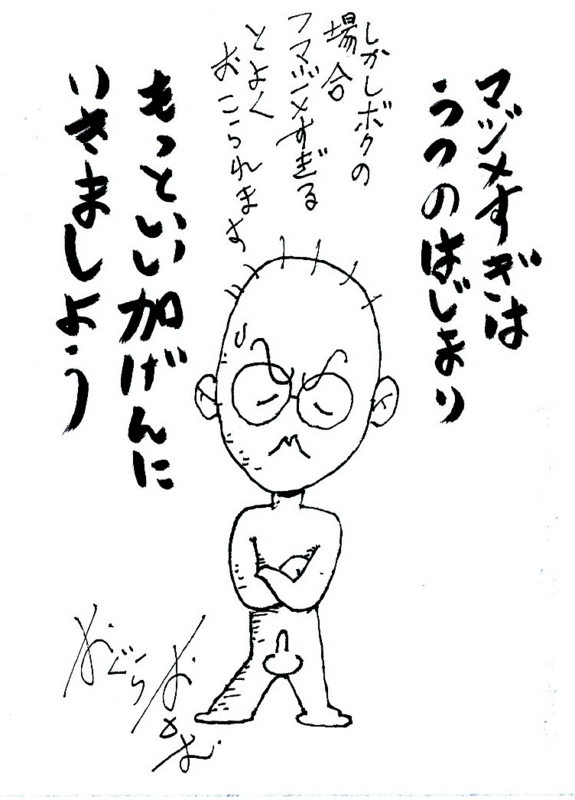 マジメすぎは
うつのはじまり
しかしボクの
場合
フマジメすぎる
とよく
おこられます
もっといい加げんに
いきましょう